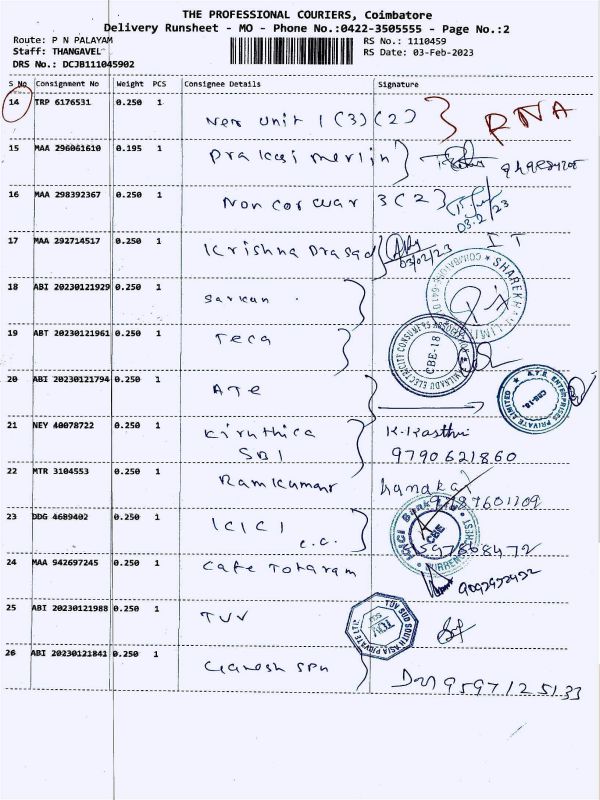 THE PROFESSIONAL COURIERS, Coimbatore
Delivery Runsheet - MO - Phone No.:0422-3505555 - Page No.:2
Route: P N PALAYAM
RS No.: 1110459
Staff: THANGAVEL
RS Date: 03-Feb-2023
DRS No.: DCJB111045902
S No Consignment No Weight PCS Consignee Details Signature
14 TRP 6176531 0.250 1
New Unit 1 (3) (2) RNA
15 MAA 296061610 0.195 1
Prakasi merlin
16 MAA 298392367 0.250 1
Noncorwar 3 (2) 03.2/23
17 MAA 292714517 0.250 1
Krishna Prasad 03/02/23 IT
18 ABI 20230121929 0.250 1
Sarkan
SHAREKHAN LIMITED
19 ABT 20230121961 0.250 1
Teca
TAMILNADU ELECTRICITY CONSUMERS ASSOCIATION
CBE-18
20 ABI 20230121794 0.250 1
ATE
A.T.E. ENTERPRISES PRIVATE LIMITED
CBE-18.
21 NEY 40078722 0.250 1
Kiruthica K.Kasthu
SBI 9790621860
22 MTR 3104553 0.250 1
Ramkumar
23 DDG 4689402 0.250 1
ICICI
c.c.
ICICI BANK
CBE
24 MAA 942697245 0.250 1
Cafe Totaram 9092952492
25 ABI 20230121988 0.250 1
TUV
TÜV SÜD SOUTH ASIA PRIVATE LTD
26 ABI 20230121841 0.250 1
Ganesh SPN
9597125133